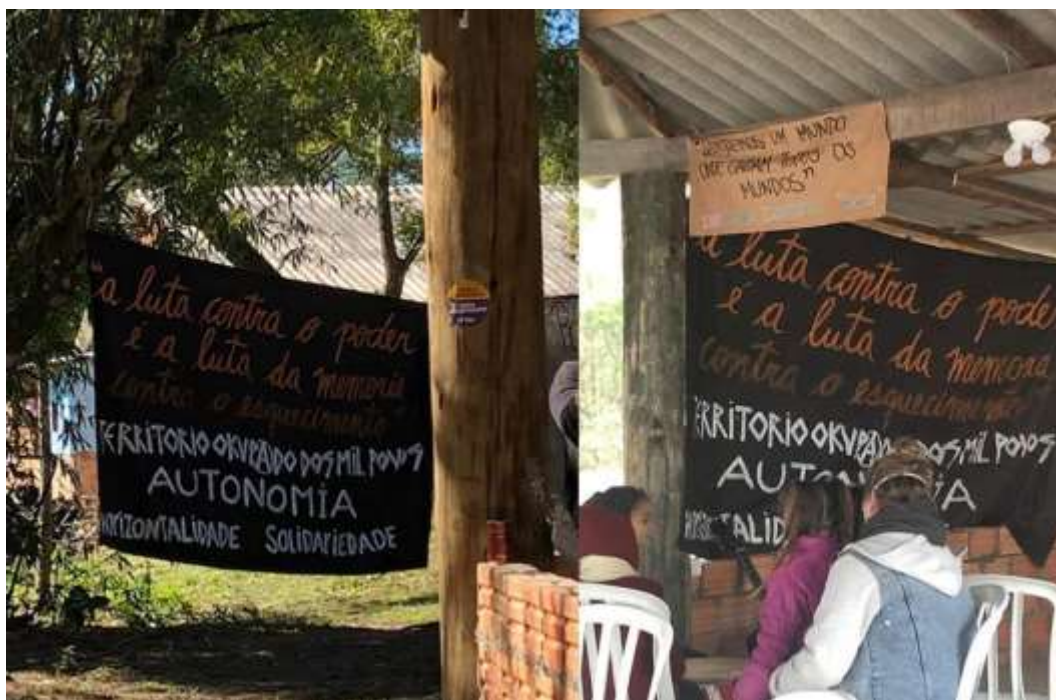 “a luta contra o poder
é a luta da memoria
contra o esquecimento”
TERRITORIO OKUPADO DOS MIL POVOS
AUTONOMIA
HORIZONTALIDADE SOLIDARIEDADE
UM MUNDO
ONDE OS
MUNDOS”
a luta contra o poder
é a luta da memoria
contra o esquecimento”
ERRITORIO OKUPADO DOS MIL POVOS
AUTONOMIA